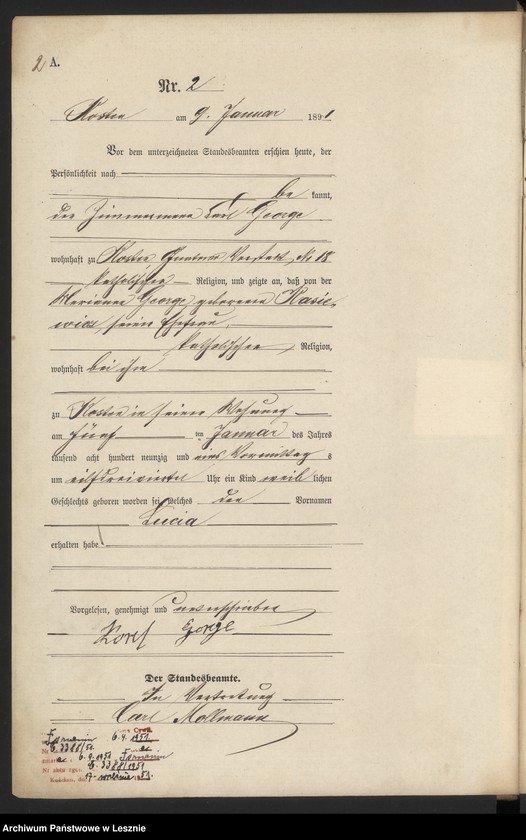 2 A.
Nr. 2
Kosten am 9. Januar 1891
Vor dem unterzeichneten Standesbeamten erschien heute, der
Persönlichkeit nach
be kannt,
der Zimmermann Carl George
wohnhaft zu Kosten Vorstadt № 18
katholischer Religion, und zeigte an, daß von der
Marianna George geborenen Kasie-
wicz, seiner Ehefrau,
katholischer Religion,
wohnhaft bei ihm
zu Kosten in seiner Wohnung
am fünf ten Januar des Jahres
tausend acht hundert neunzig und eins Vormittag s
um elfdreiviertel Uhr ein Kind weib lichen
Geschlechts geboren worden sei, welches den Vornamen
Lucia
erhalten habe
Vorgelesen, genehmigt und unterschrieben
Karl George
Der Standesbeamte.
In Vertretung
Carl Mollmann
6.9. 1951
Nr 3388/51
6.9.1951
3388/1951
Archiwum Państwowe w Lesznie